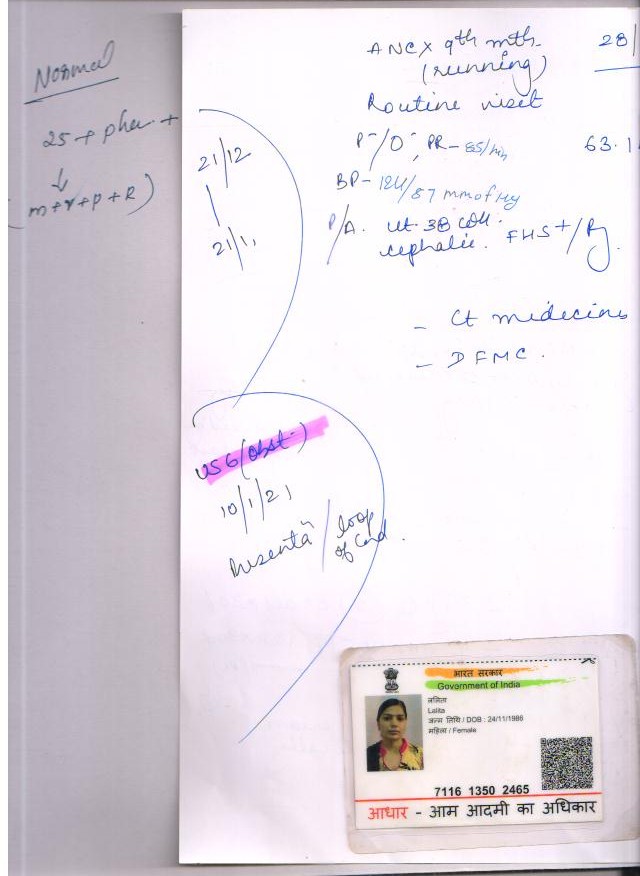 Normal
25 + phen +
↓
(m+v+p+R)
ANC x 9th mth. 28/
(running)
Routine visit
P-/O-, PR- 85/min 63.1
BP- 124/87 mmofHg
P/A. ut. 38
cephalic. FHS+/R
- Ct medecins
- DFMC.
21/12
21/1,
USG (Obst.)
10/1/21
/ loop
of Cord.
भारत सरकार
Government of India
ललिता
Lalita
जन्म तिथि / DOB : 24/11/1988
महिला / Female
7116 1350 2465
आधार - आम आदमी का अधिकार